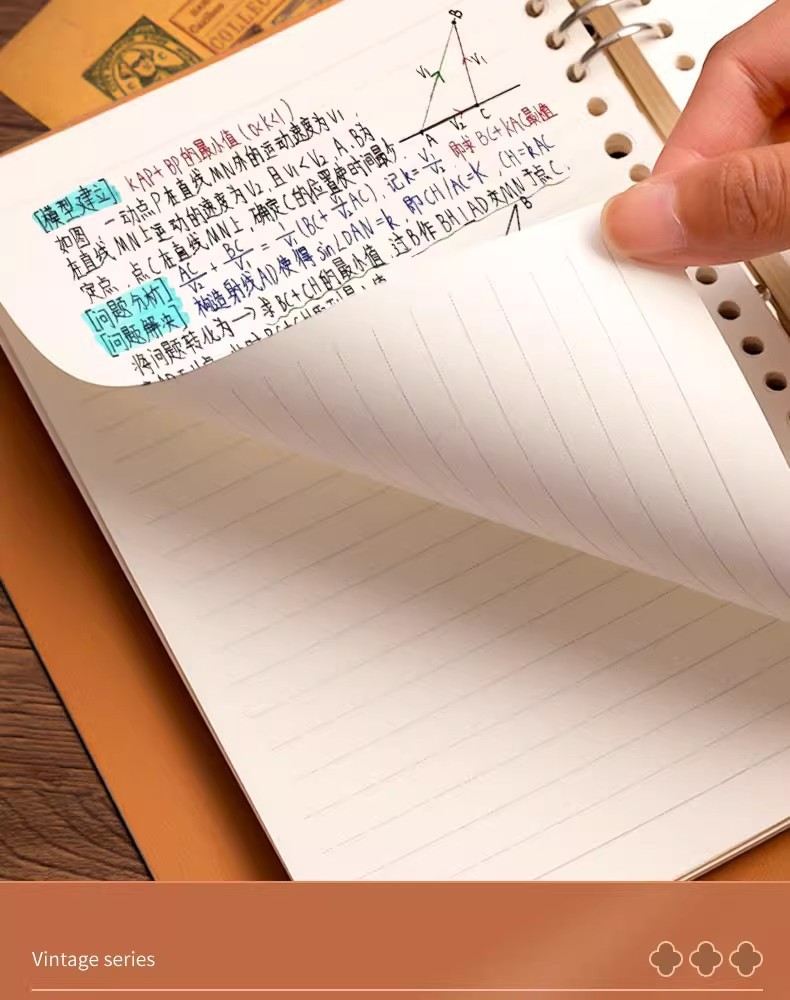 COLLEC
B
V₁
V₁
A
V₂
C
[模型建立] KAP+BP的最小值(0<k<1)
如图,一动点P在直线MN外的运动速度为V₁
在直线MN上运动的速度为V₂ 且V₁<V₂ A、B为
定点,点C在直线MN上,确定C的位置使时间最
[问题分析] AC/V₂ + BC/V₁ = 1/V₁(BC+V₁/V₂AC),记k=V₁/V₂ 即求BC+KAC最小值
[问题解决] 构造射线AD使得sin∠DAN=k 即CH/AC=K,CH=KAC
将问题转化为→求BC+CH的最小值,过B作BH⊥AD交MN于点C
B
Vintage series